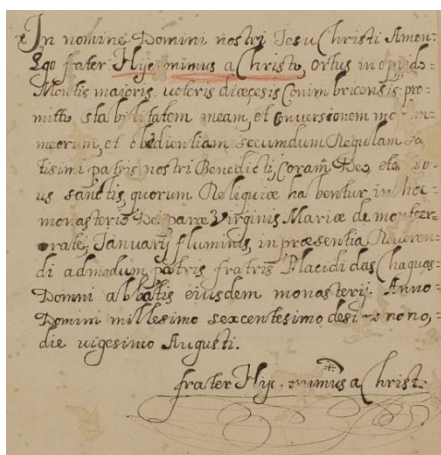 In nomine Domini nostri Jesu Christi Amen.
Ego frater Hije mimus a Christo, Ortus in opido
Montis maioris, veteris diæcesis Conimbricensis pro=
mitto stabilitatem meam, et conversionem
meorum, et obedientiam secundum Regulam
tisimi patris nostri Benedicti, Coram Deo, et
us sanctis, quorum Reliquiæ habentur in hoc
monasterio Deiparæ Virginis Mariæ de
Januarij fluminis, in præsentia Reveren=
di admodum patris fratris Placidi das Chaguas
Domni abbatis eiusdem monasterij. Anno=
Domini millesimo sexcentesimo nono,
die vigesimo Augusti.
frater Hije mimus a Christ